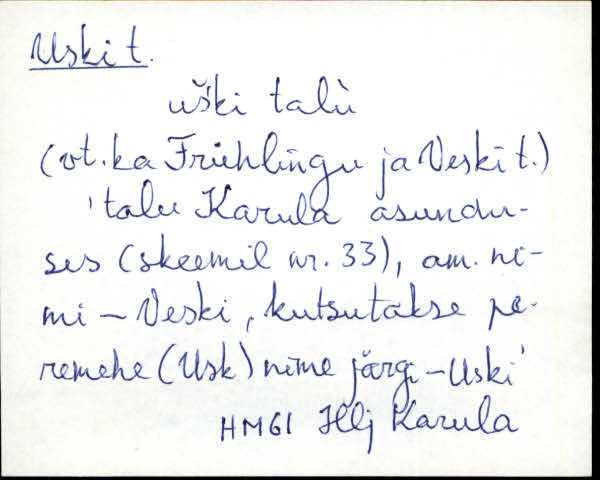 Uski t.
uški talù
(vt. ka Friehlingu ja Veski t.)
'talu Karula asundu-
ses (skeemil nr. 33), am. ni-
mi - Veski, kutsutakse pe-
remehe (Usk) nime järgi - Uski'
HM61 Hlj Karula